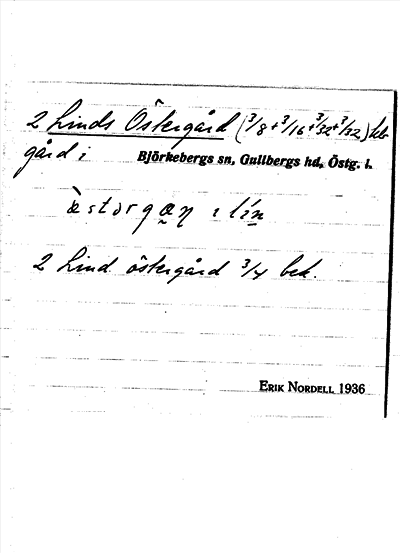 2 Linds Östergård (3/8+3/16+3/32+3/32) bebr
gård i Björkebergs sn, Gullbergs hd, Östg. l.
2 Lind östergård 3/4 bek.
ERIK NORDELL 1936